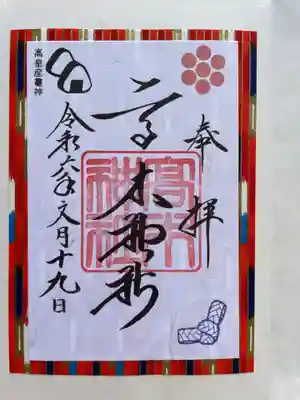 奉拝
高木神社
高皇産霊神
令和六年文月十九日
高木神社